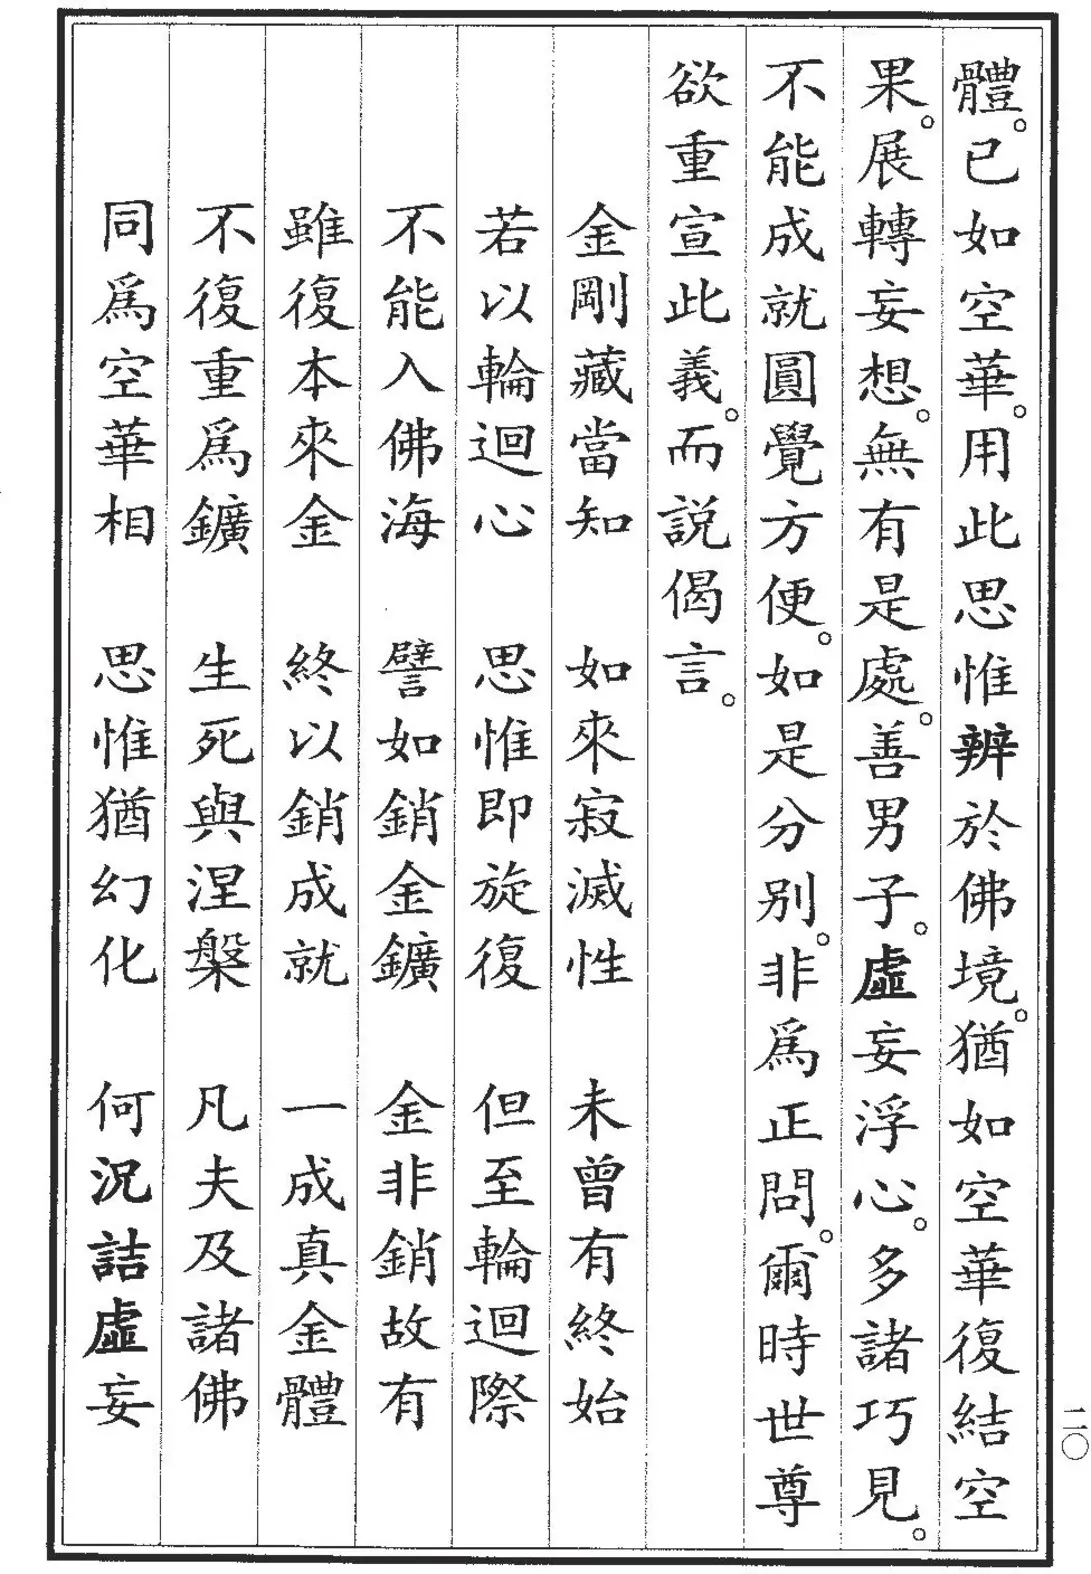 體。已如空華。用此思惟辨於佛境。猶如空華復結空
果。展轉妄想。無有是處。善男子。虛妄浮心。多諸巧見。
不能成就圓覺方便。如是分別。非爲正問。爾時世尊
欲重宣此義。而説偈言。
金剛藏當知　如來寂滅性　未曾有終始
若以輪迴心　思惟即旋復　但至輪迴際
不能入佛海　譬如銷金鑛　金非銷故有
雖復本來金　終以銷成就　一成真金體
不復重爲鑛　生死與涅槃　凡夫及諸佛
同爲空華相　思惟猶幻化　何況詰虛妄
二〇